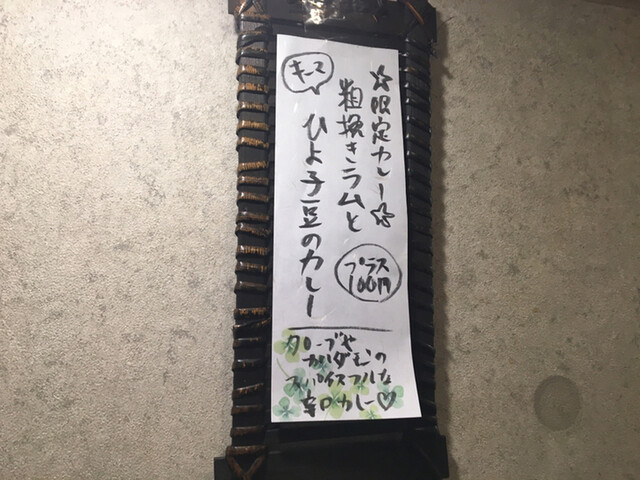 ☆限定カレー☆
粗挽きラムと
ひよ子豆のカレー
キーマ
プラス
100円
クローブや
カルダモンの
スパイスフルな
辛口カレー♡